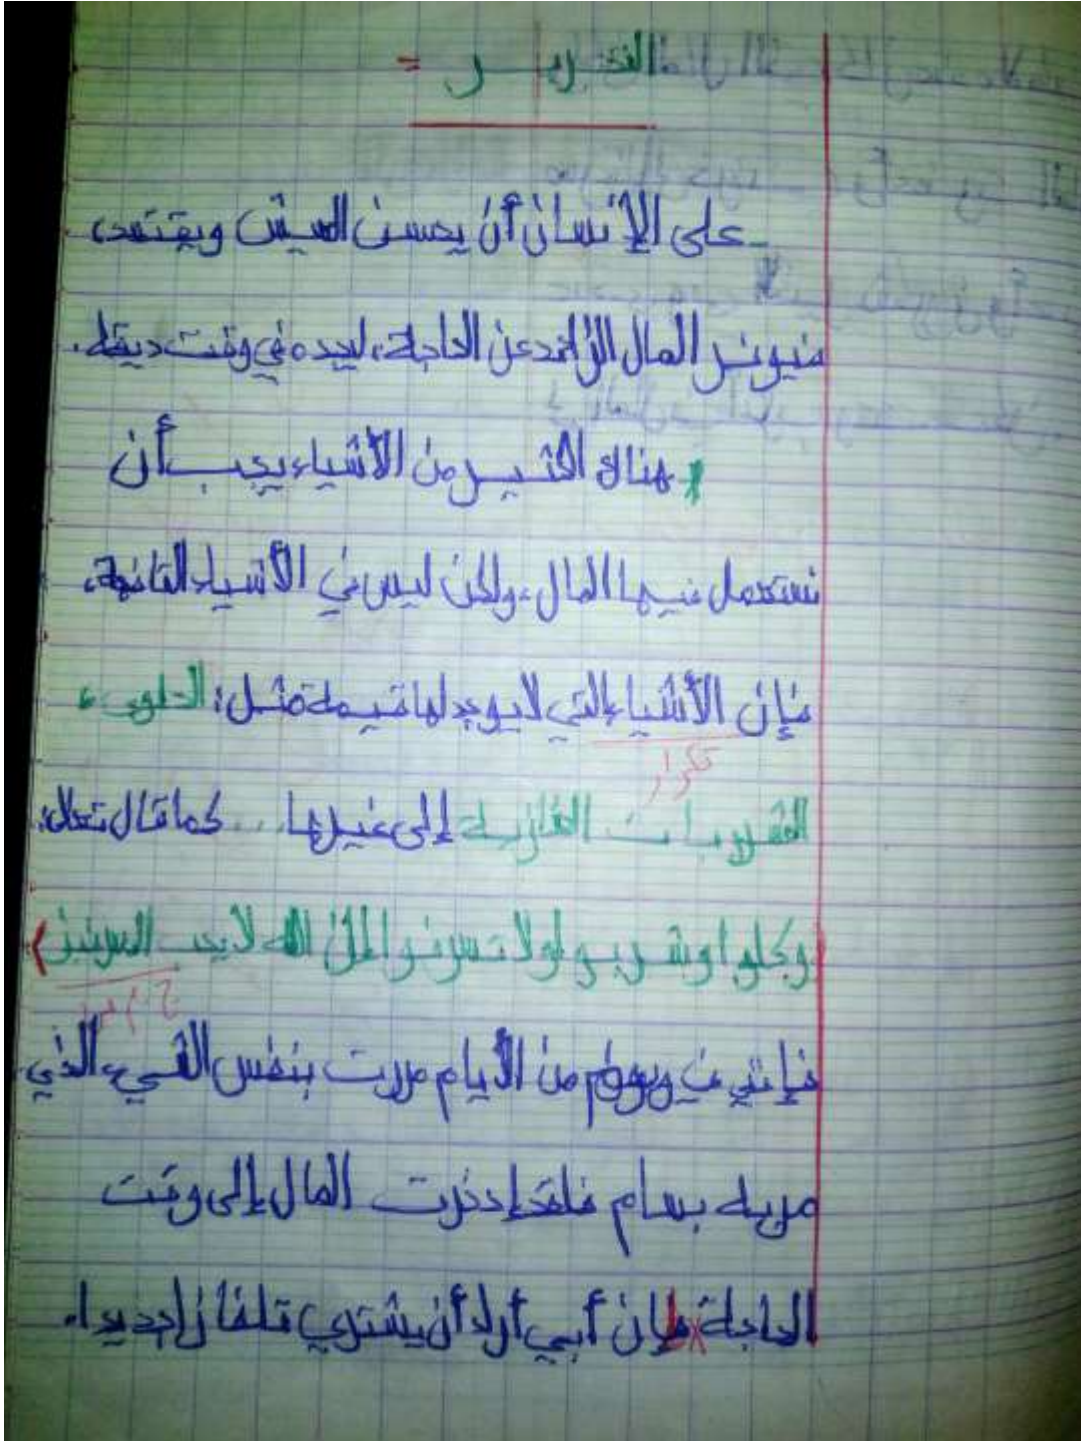 التحريـــر =
ـ على الإنسان أن يحسن العيش ويقتصد،
فيوفر المال الزائد عن الحاجة، ليجده في وقت ديقه.
هناك الكثيـر من الأشياء يجب أن
نستعمل فيها المال، ولكن ليس في الأشياء التافهة،
فإن الأشياء التي لا يوجد لها قيمة مثل: الحلوى،
تكرار
المشروبات الغازية إلى غيرها... كما قال تعالى:
(وكلوا وشربوا ولا تسرفوا إن الله لا يحب المسرفين).
فإنني في يوم من الأيام مررت بنفس الشيء الذي
مر به بسام فلقد إدخرت المال إلى وقت
الحاجة فإن أبي أراد أن يشتري تلفازا جديدا.